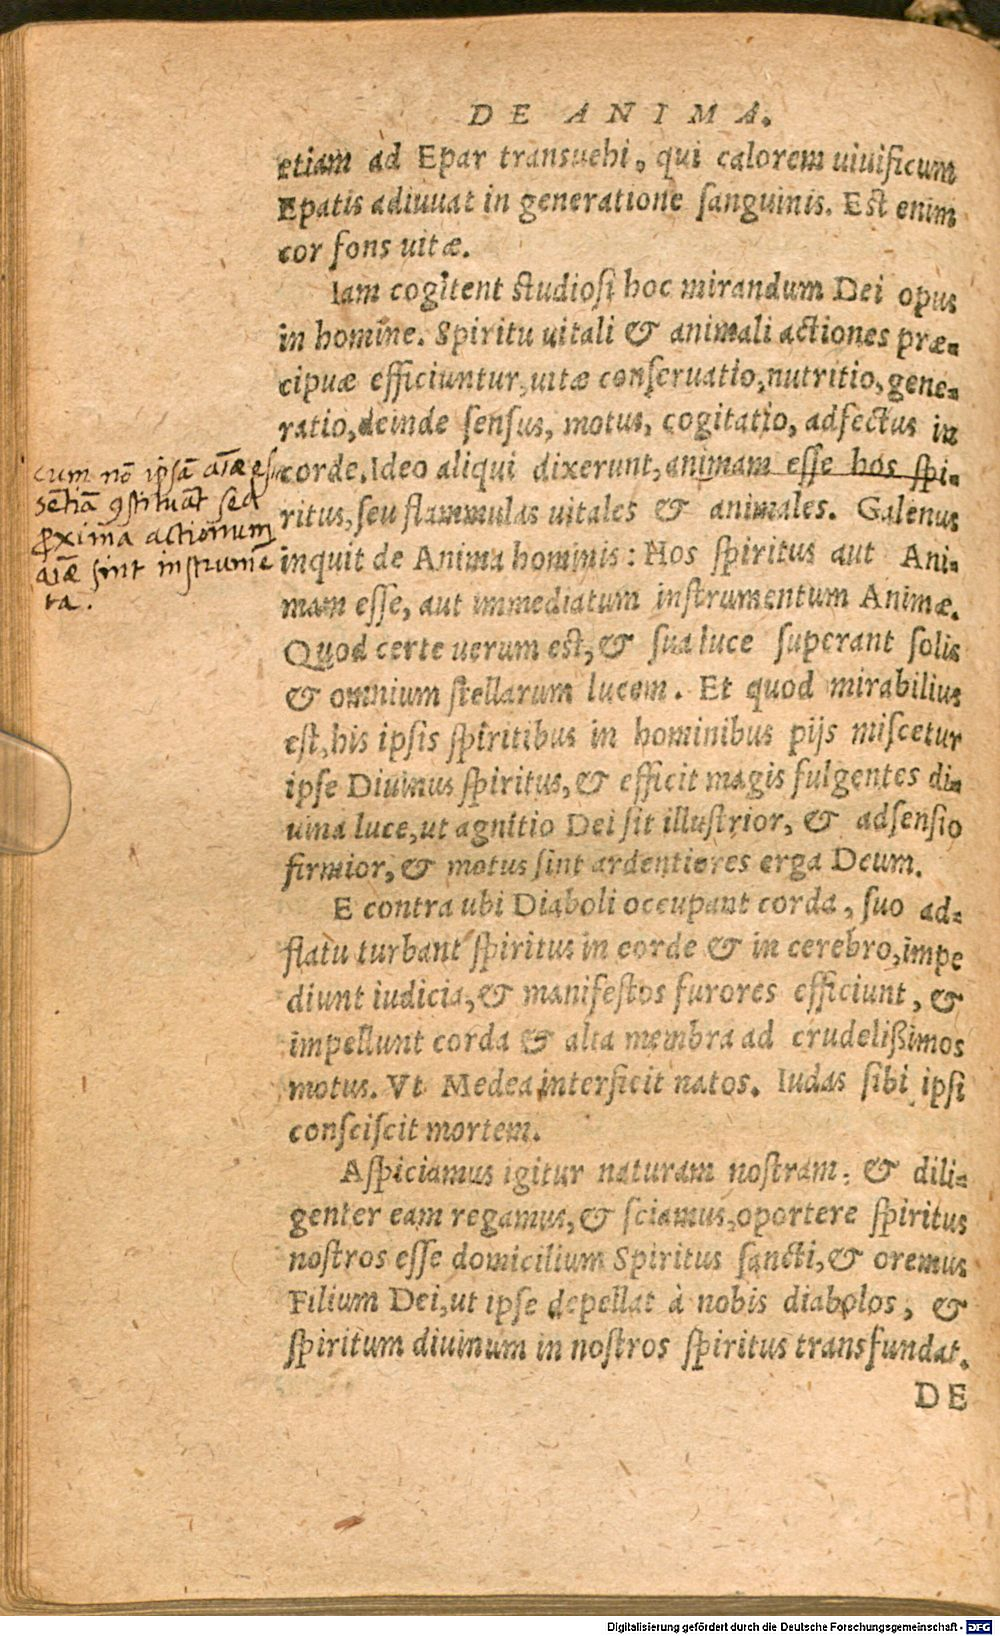 DE ANIMA.
etiam ad Epar transuehi, qui calorem uiuificum
Epatis adiuuat in generatione sanguinis. Est enim
cor fons uitæ.
Iam cogitent studiosi hoc mirandum Dei opus
in homine. Spiritu uitali & animali actiones præ-
cipuæ efficiuntur, uitæ conseruatio, nutritio, gene-
ratio, deinde sensus, motus, cogitatio, adfectus in
corde. Ideo aliqui dixerunt, animam esse hos spi-
ritus, seu flammulas uitales & animales. Galenus
inquit de Anima hominis: Hos spiritus aut Ani-
mam esse, aut immediatum instrumentum Animæ.
Quod certe uerum est, & sua luce superant solis
& omnium stellarum lucem. Et quod mirabilius
est, his ipsis spiritibus in hominibus pijs miscetur
ipse Diuinus spiritus, & efficit magis fulgentes di-
uina luce, ut agnitio Dei sit illustrior, & adsensio
firmior, & motus sint ardentiores erga Deum.
E contra ubi Diaboli occupant corda, suo ad-
flatu turbant spiritus in corde & in cerebro, impe
diunt iudicia, & manifestos furores efficiunt, &
impellunt corda & alia membra ad crudelißimos
motus. Vt Medea interficit natos. Iudas sibi ipsi
consciscit mortem.
Aspiciamus igitur naturam nostram: & dili-
genter eam regamus, & sciamus, oportere spiritus
nostros esse domicilium Spiritus sancti, & oremus
Filium Dei, ut ipse depellat à nobis diabolos, &
spiritum diuinum in nostros spiritus transfundat.
DE
cum nō ipsā aīæ es
sētiā ꝯstituāt sed
ꝓxima actionum
aīæ sint instrumē
ta.
Digitalisierung gefördert durch die Deutsche Forschungsgemeinschaft - DFG